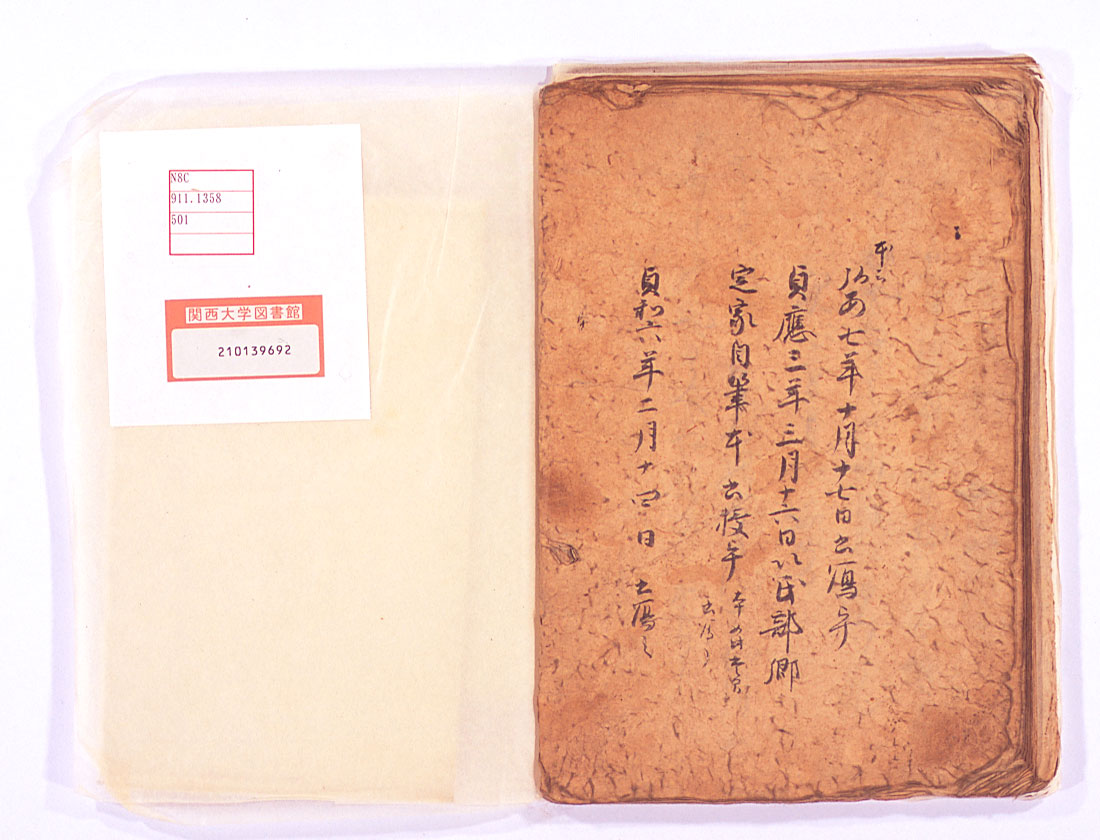 N8C
911.1358
501
関西大学図書館
210139692
本云
治承七年十月十七日書寫畢
貞應三年三月十六日以民部卿
定家自筆本書授畢
書寫了
貞和六年二月十四日 書寫之